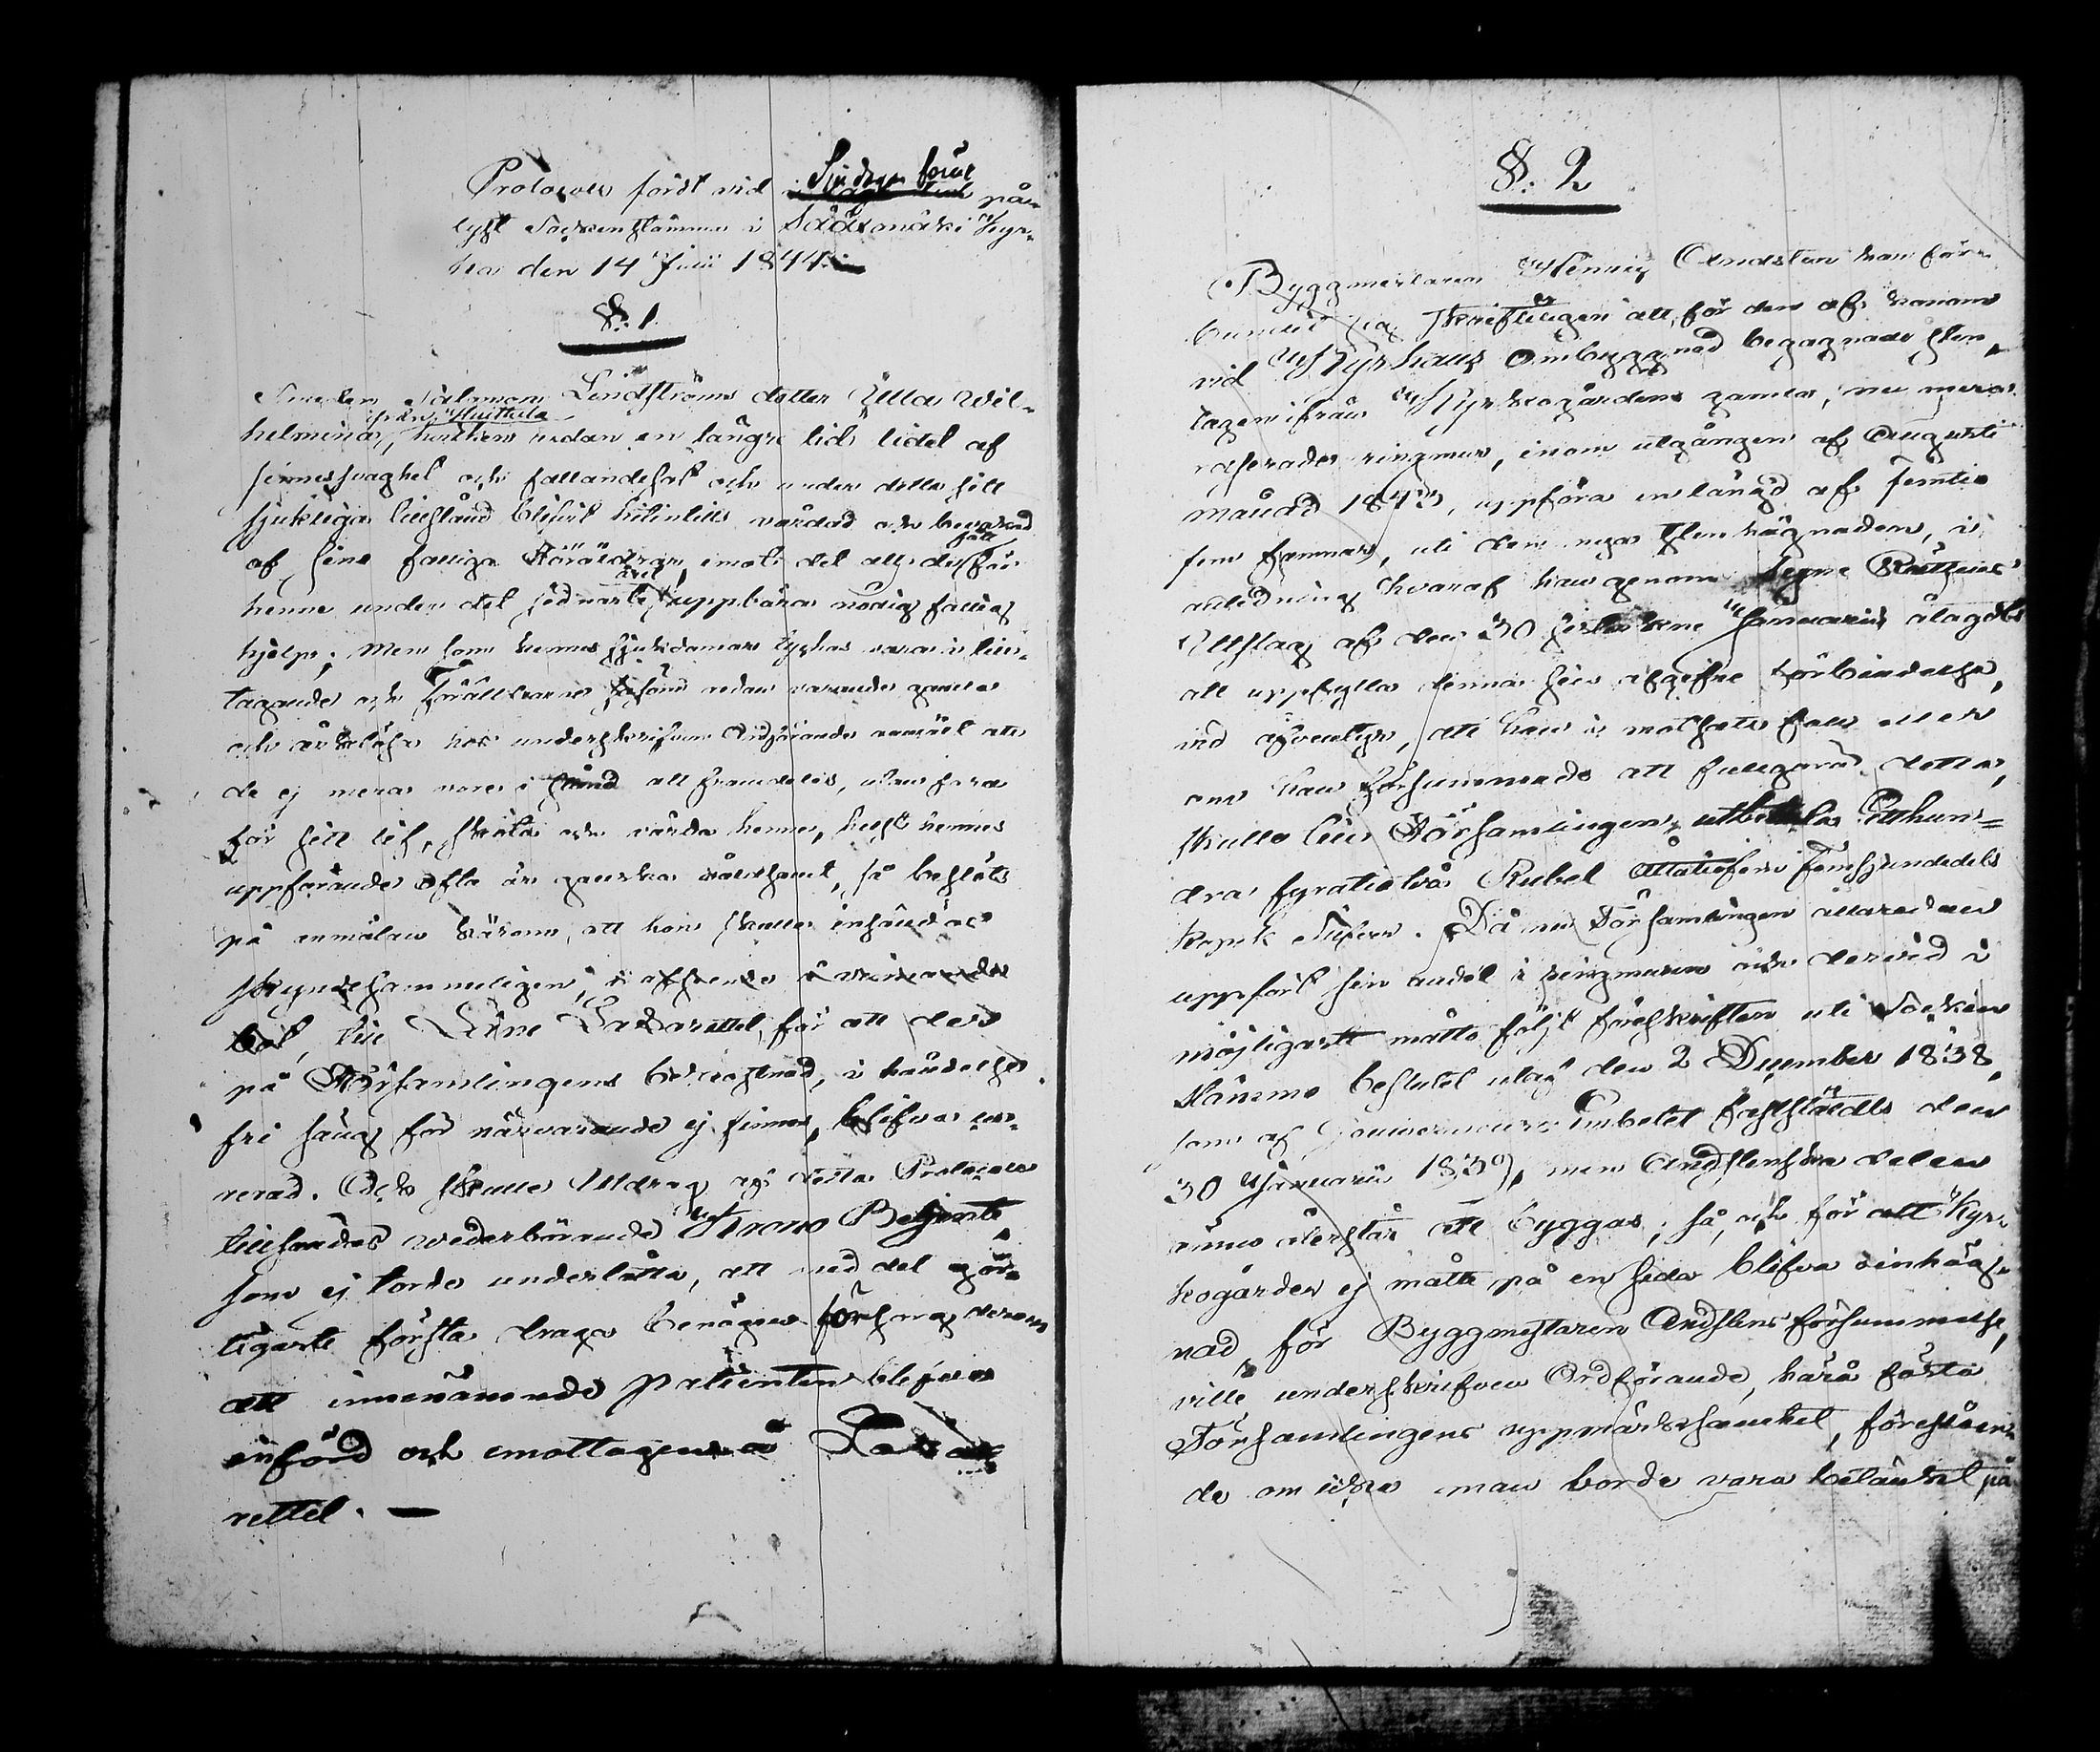 Protocoll fördt vid
på-
lyst Sockenstämma i Sääxmäki Kyr-
ka den 14 Julii 1844.
§. 1.
Smeden Salomon Lindströms dotter Ulla Wil-
från Huittula
helmina, hvilken redan en längre tid lidit af
sinnessvaghet och fallandesot och under detta sitt
sjukliga tillstånd blifvit hitintills vårdad och
af sine fattige Föräldrar, emot det att de för
året
henne under det sednaste uppbära nödig fattig
hjelp; Men som hennes sjukdomar tyckas vara i till-
tagande och Föräldrarne redan varande gamla
och hos underskrifven Ordförande anmält att
de ej mera vore i stånd att framdeles, utan fara
för sitt lif, sköta och vårda henne, helst hennes
uppförande ofta är ganska våldsamt, så beslöts
på anmälan härom, att hon skulle insändas
skyndesammeligen, i afseende å vinnande
bot, till Läne Lazarettet, för att der
på Församlingens bekostnad, i händelse
fri säng för närvarande ej finnes, blifva cu-
rerad. Och skulle Utdrag af detta Protocoll
tillsändas wederbörande Krono Betjente,
som ej torde underlåta, att med det gör-
ligaste första draga benägen försorg derom
att innenämnde patienten blifver
införd och emottagen å Laza-
rettet. —
§. 2
Byggmestaren Henric Andsten har för-
bundit sig skriftligen att, för den af honom
vid Kyrkans ombyggnad begagnade sten,
tagen ifrån Kyrkogårdens gamla, nu mera
raserade ringmur, inom utgången af Augusti
månad 1843, uppföra en längd af femtio
fem famnar, uti den nya stenhägnaden, i
anledning hvaraf han genom Rättens
Utslag af den 30 sistledne Januarii ålagdts
att uppfylla denna sin afgifne förbindelse,
vid äfventyr, att han i motsatt fall eller
om han försummade att fullgöra detta,
skulle till Församlingen utbetala Etthun-
dra fyratiotvå Rubel Åttatiofem Femsjundedels
Kopek Silfver. Då nu Församlingen allaredan
uppfört sin andel i ringmuren och dervid i
möjligaste måtto följt föreskriften uti Socken
stämmo beslutet utaf den 2 December 1838,
som af Gouverneurs Embetet fastställdts den
30 Januarii 1839, men Andstenska delen
ännu återstår att byggas; så, och för att Kyr-
kogården ej måtte på en sida blifva oinhäg-
nad, för Byggmestaren Andstens försummelse,
ville underskrifven Ordförande, härå fästa
Församlingens uppmärksamhet, föreslåen-
de om icke man borde vara betänkt på